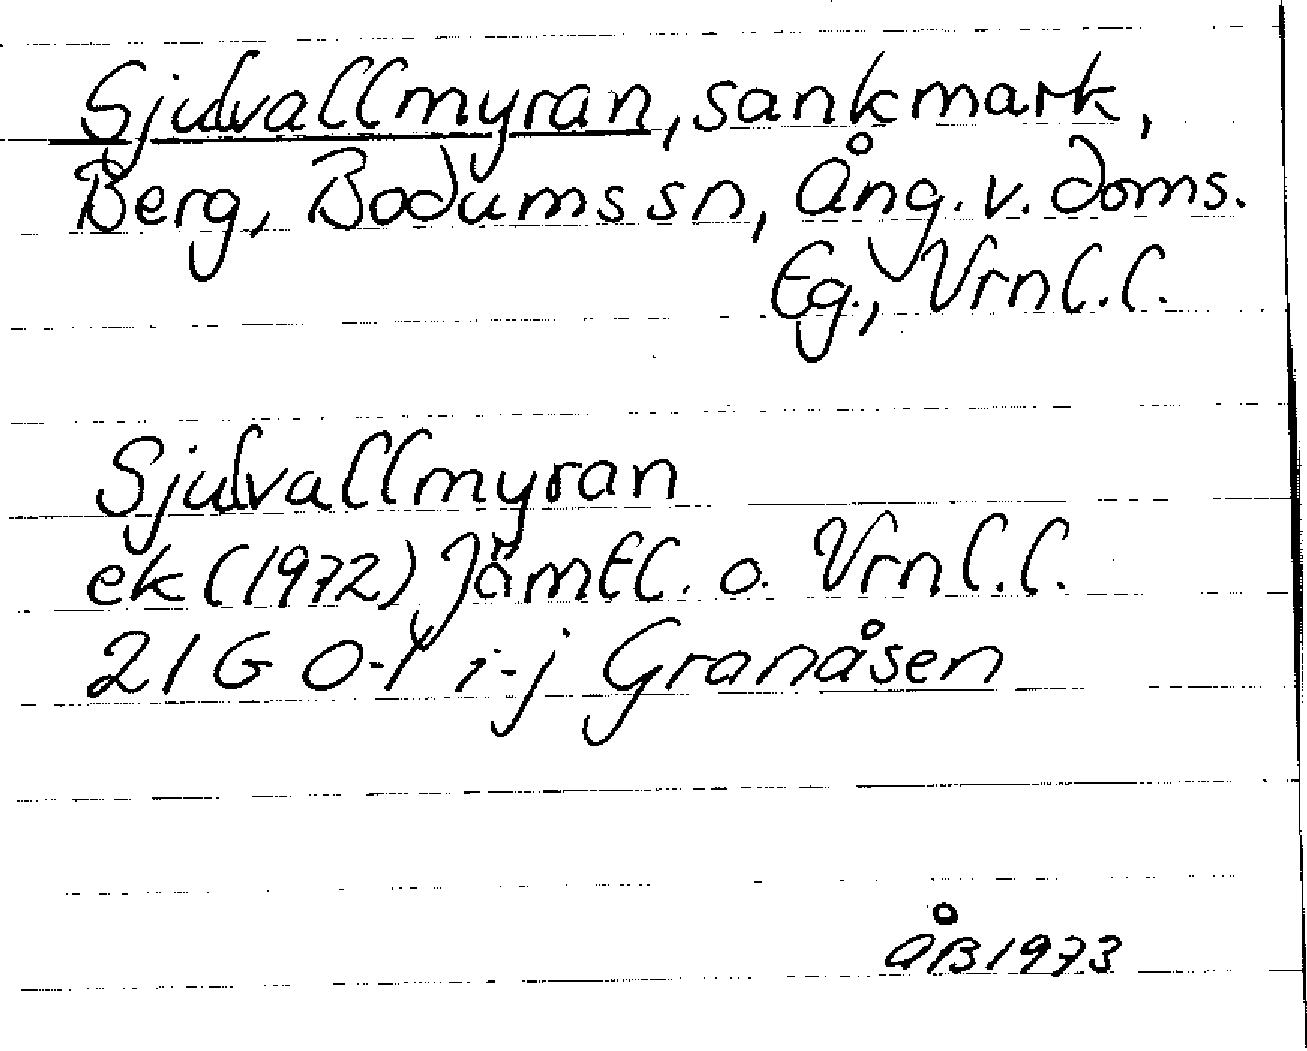 Sjulvallmyran, sankmark,
Berg, Bodums sn, Ång. v. doms.
Eg., Vrnl.l.
Sjulvallmyran
ek (1972) Jämtl. o. Vrnl.l.
21 G 0-1 i-j Granåsen
ÅB 1973